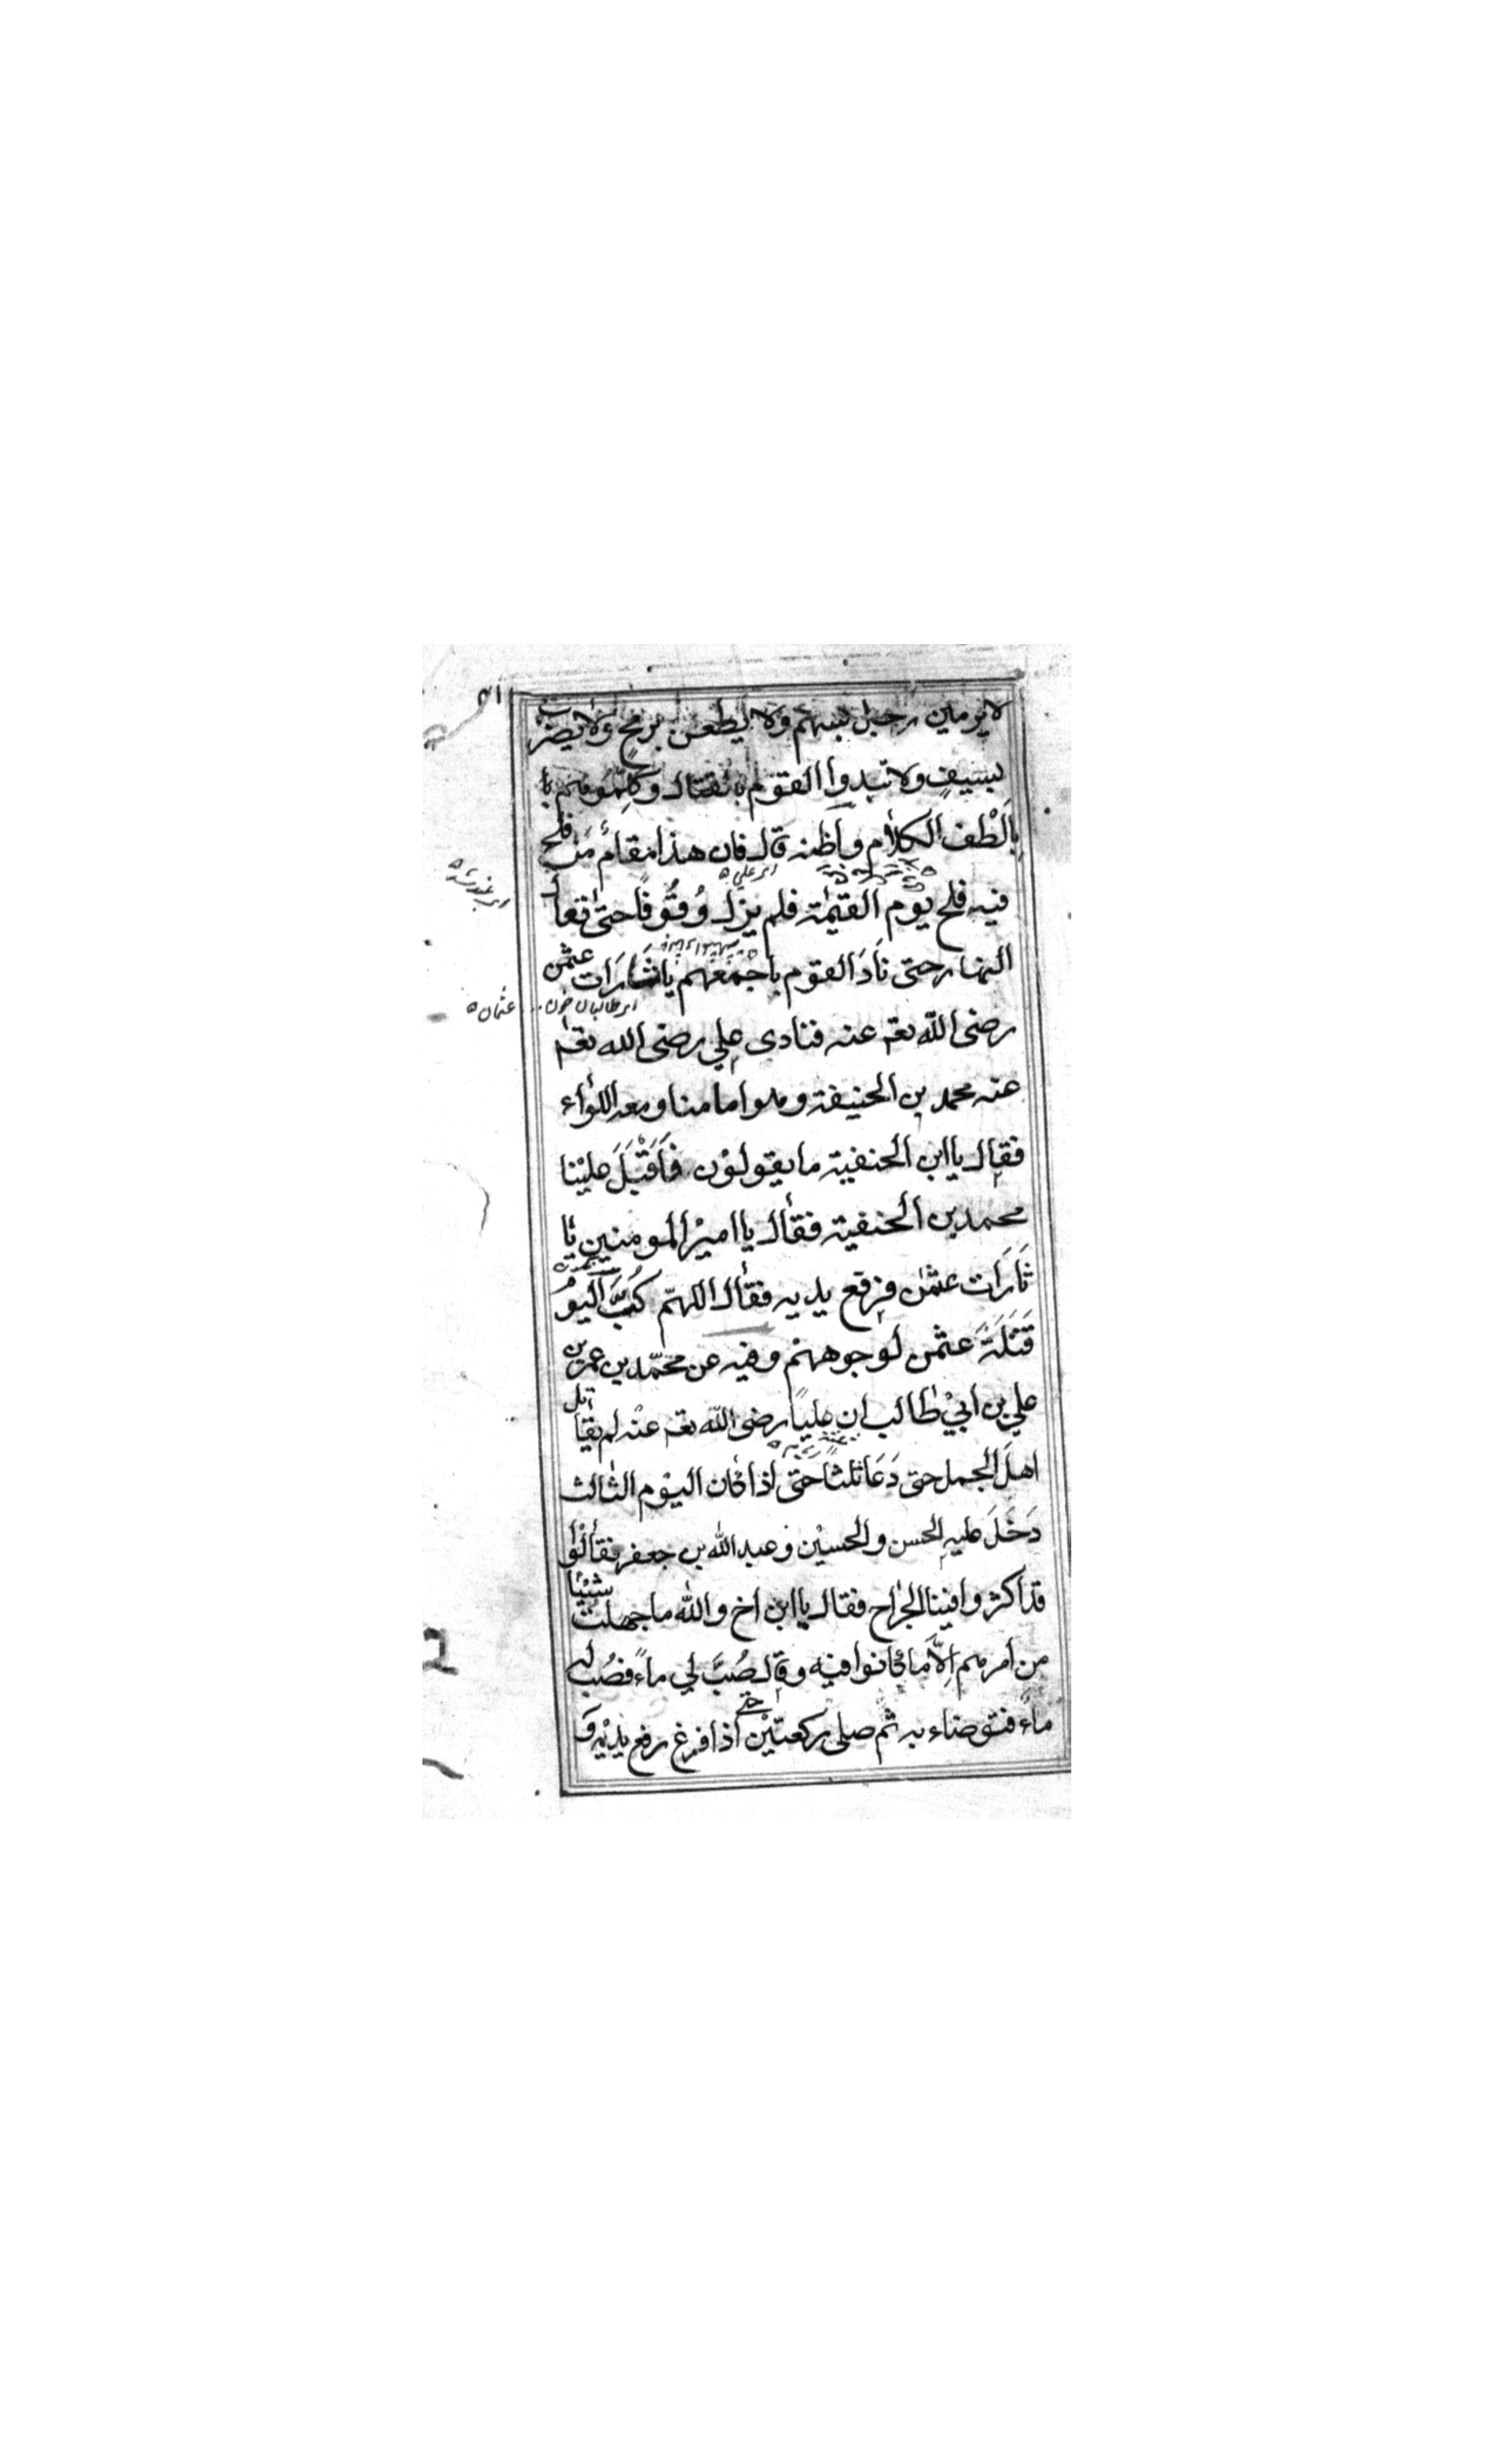 لا يرمين رجل بسهم ولا يطعن برمح ولا يضرب
بسيف ولا تبدوا القوم بالقتال وكلّموهم با
بِالْطف الكلام واظنه قال فان هذا مقام من فلح
فيه فلح يوم القيمة فلم يزل وُقُوفًا حتى تعال
النهار حتى نَادَ القوم باجمعهم يا ثَارَات عثمن
رضى الله تعه عنه فنادى علي رضى الله تعه
عنه محمد بن الحنيفة وهوا مامنا ومعه اللواء
فقال يا ابن الحنفية ما يقولون فَاَقْبَلَ علينا
محمد بن الحنفية فقال يا امير المومنين يا
ثَارَات عثمن فرفع يديه فقال اللهم كُبَّ اليومَ
قَتَلَةَ عثمن لوجوههم وفيه عن محمّد بن عمر بن
علي بن ابي طالب ان عليًا رضى الله تعه عنه لم يقاتل
اهل الجمل حتى دَعَا ثلثًا حتى اذا كان اليوم الثالث
دَخَلَ عليه الحسن والحسين وعبد الله بن جعفر فقالوا
قد اكثروا فينا الجراح فقال يا ابن اخ والله ما جهلت شيئا
من امرهم اِلّا ما كانوا فيه وقال صُبَّ لي ماءً فصُب له
ماءً فتوضاء به ثم صلى ركعتين حتى اذا فرغ رفع يديه وَ
اى على
اى طالبان خون عثمان